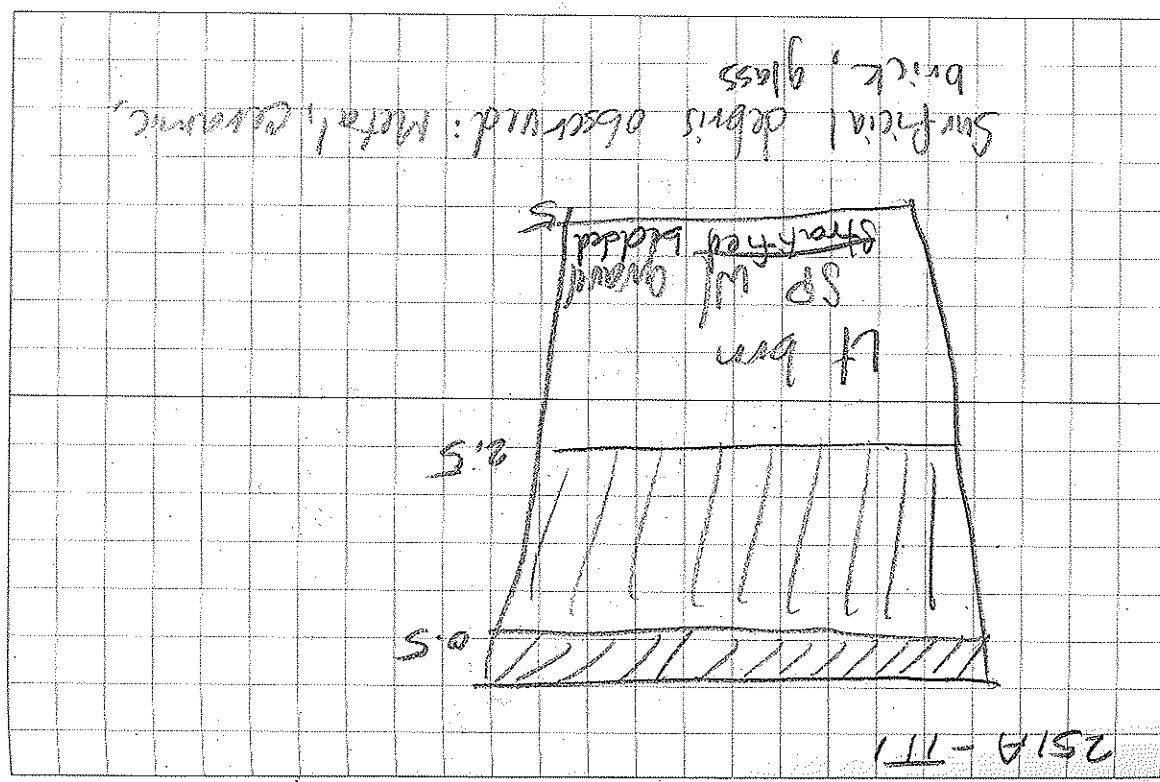 251A - TT1
0.5
2.5
Lt brn
SP w/ gravel
Stratified bedded
5
Surficial debris observed: Metal, ceramic,
brick, glass